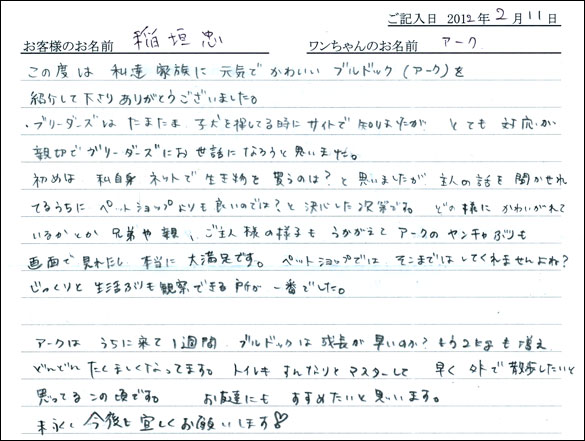 ご記入日 2012年2月11日
お客様のお名前 稲垣 忠 ワンちゃんのお名前 アーク
この度は 私達家族に 元気で かわいい ブルドック (アーク)を
紹介して下さり ありがとうございました。
・ブリーダーズは たまたま 子犬を探してる時に サイトで 知りましたが とても 対応が
親切で ブリーダーズに お世話になろうと思いました。
初めは 私自身 ネットで 生き物を 買うのは?と思いましたが 主人の話を 聞かせれ
てるうちに ペットショップよりも良いのでは?と 決心した次第です。 どの様に かわいがれて
いるかとか 兄弟や親、ご主人様の様子も うかがえて アークの ヤンチャぶりも
画面で 見れたし 本当に 大満足です。 ペットショップでは そこまではしてくれませんよね?
じっくりと 生活ぶりも観察できる所が 一番でした。
アークは うちに来て 1週間 ブルドックは 成長が 早いのか? もう2kgも増え
どんどん たくましくなってます。トイレも すんなりと マスターして 早く 外で散歩したいと
思ってる この頃です。 お友達にも すすめたいと思います。
末永く 今後も 宜しくお願いします♡